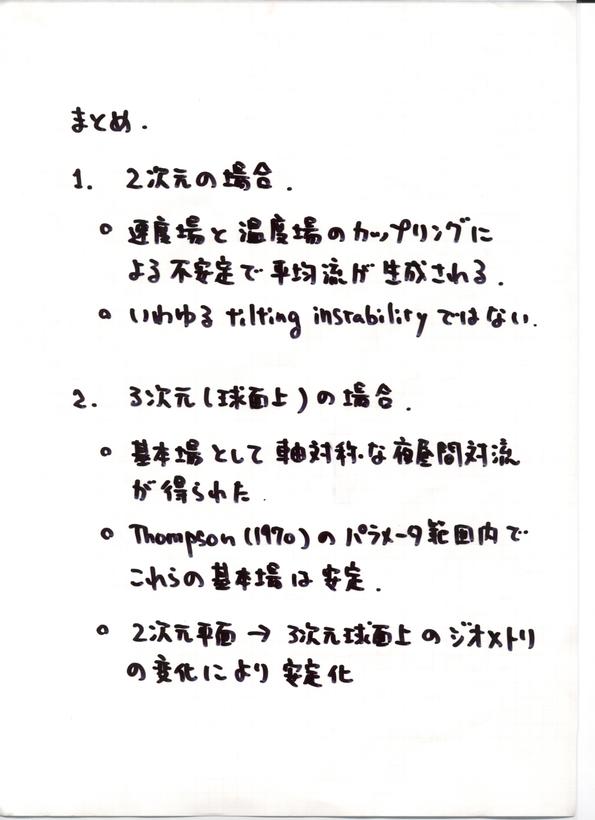 まとめ.
1. 2次元の場合.
○ 速度場と温度場のカップリングに
よる不安定で平均流が生成される.
○ いわゆる tilting instability ではない.
2. 3次元(球面上)の場合.
○ 基本場として軸対称な夜昼間対流
が得られた.
○ Thompson (1970) のパラメータ範囲内で
これらの基本場は安定.
○ 2次元平面 → 3次元球面上のジオメトリ
の変化により安定化